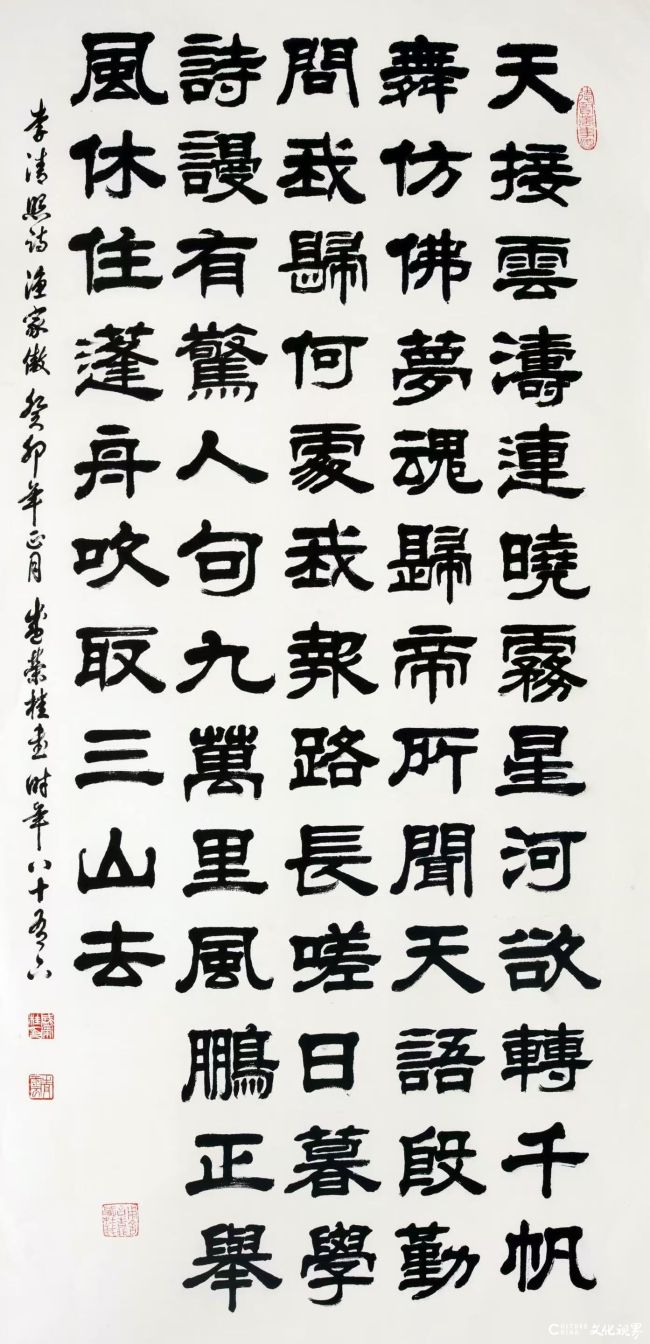 天接雲濤連曉霧星河欲轉千帆
舞仿佛夢魂歸帝所聞天語殷勤
問我歸何處我報路長嗟日暮學
詩謾有驚人句九萬里風鵬正舉
風休住蓬舟吹取三山去
李清照诗漁家傲癸卯年正月盛榮桂書时年八十有六
CULTURE CHINA 文化视界